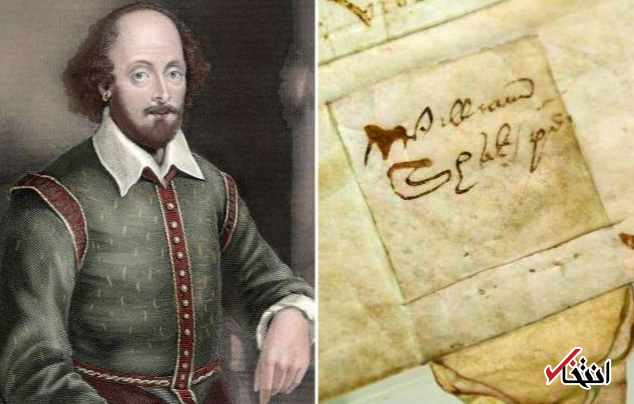 William
Shakspē
انتخاب